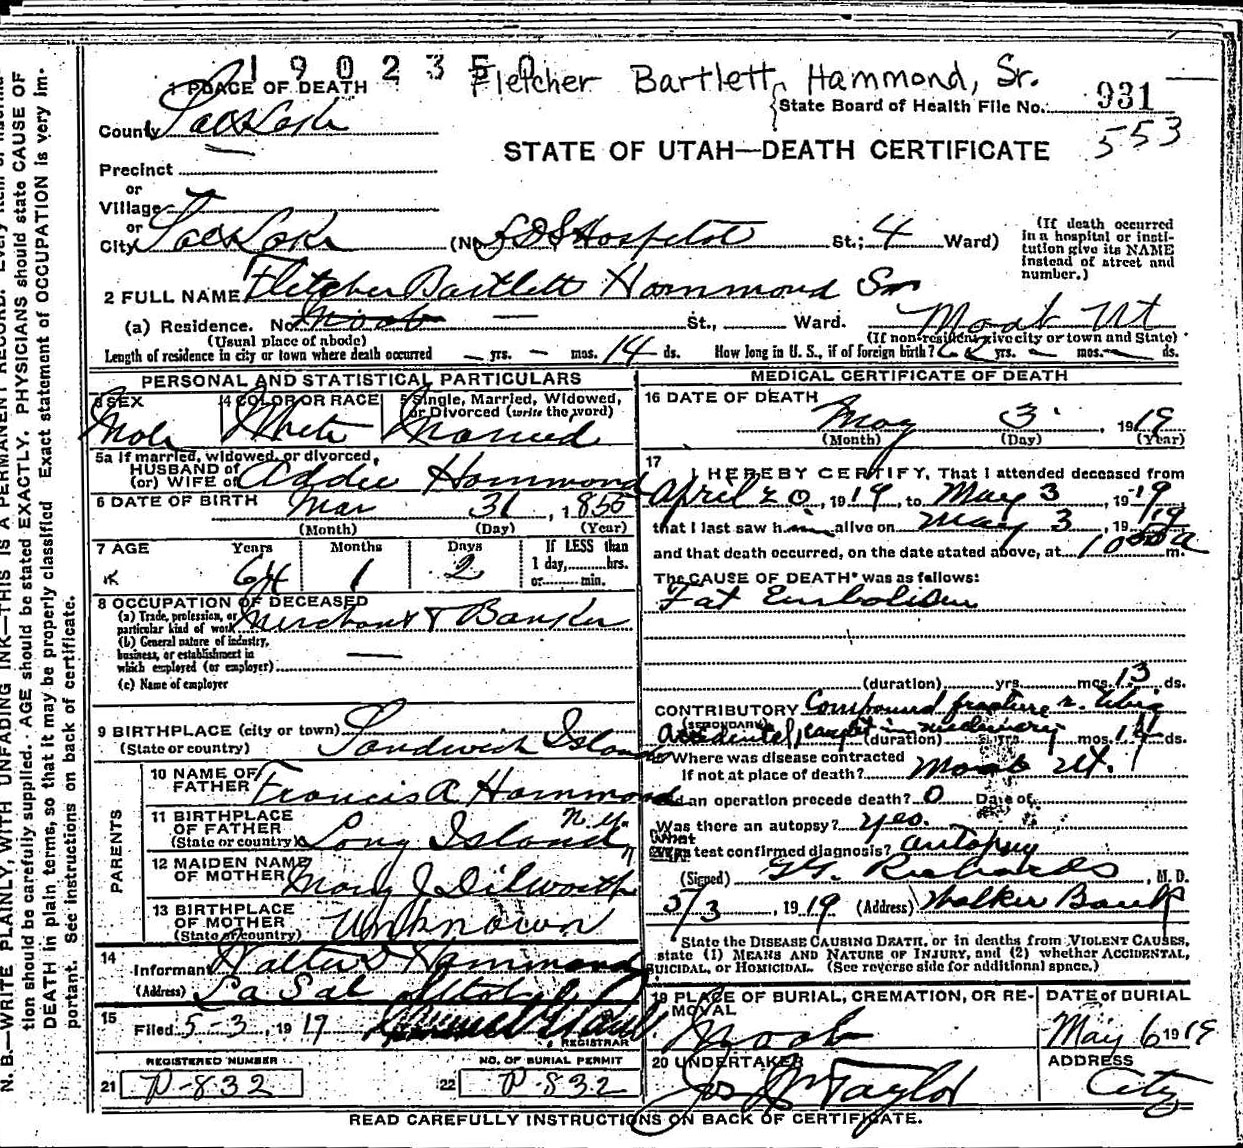 1902350
Fletcher Bartlett Hammond, Sr.
1 PLACE OF DEATH
State Board of Health File No. 931
553
County Salt Lake
STATE OF UTAH—DEATH CERTIFICATE
Precinct
or
Village
or
City Salt Lake (No. LDS Hospital St.; 4 Ward)
(If death occurred in a hospital or institution give its NAME instead of street and number.)
2 FULL NAME Fletcher Bartlett Hammond Sr
(a) Residence. No. Moab — St., Ward. Moab Ut
(Usual place of abode) (If non-resident give city or town and State)
Length of residence in city or town where death occurred — yrs. — mos. 14 ds. How long in U. S., if of foreign birth? 62 yrs. — mos. — ds.
PERSONAL AND STATISTICAL PARTICULARS
3 SEX Male
4 COLOR OR RACE White
5 Single, Married, Widowed, or Divorced (write the word) Married
5a If married, widowed, or divorced
HUSBAND of
(or) WIFE of Addie Hammond
6 DATE OF BIRTH Mar 31, 1855
(Month) (Day) (Year)
7 AGE Years Months Days If LESS than
64 1 2 1 day, hrs.
or min.
8 OCCUPATION OF DECEASED
(a) Trade, profession, or particular kind of work Merchant & Banker
(b) General nature of industry, business, or establishment in which employed (or employer) —
(c) Name of employer
9 BIRTHPLACE (city or town)
(State or country) Sandwich Islands
PARENTS
10 NAME OF FATHER Francis A Hammond
11 BIRTHPLACE OF FATHER
(State or country) Long Island N.Y.
12 MAIDEN NAME OF MOTHER Mary J Dilworth
13 BIRTHPLACE OF MOTHER
(State or country) Unknown
14 Informant Walter D Hammond
(Address) La Sal Utah
15 Filed 5-3, 1919
REGISTRAR
REGISTERED NUMBER NO. OF BURIAL PERMIT
21 P-832 22 P-832
MEDICAL CERTIFICATE OF DEATH
16 DATE OF DEATH May 3, 1919
(Month) (Day) (Year)
17 I HEREBY CERTIFY, That I attended deceased from
April 20, 1919, to May 3, 1919
that I last saw him alive on May 3, 1919
and that death occurred, on the date stated above, at 10 a m.
The CAUSE OF DEATH* was as follows:
Fat Embolism
(duration) yrs. mos. 13 ds.
CONTRIBUTORY Compound fracture r. tibia
(SECONDARY) Accidental, caught in machinery
(duration) yrs. mos. 14 ds.
18 Where was disease contracted
if not at place of death? Moab Ut.
Did an operation precede death? 0 Date of
Was there an autopsy? yes.
What test confirmed diagnosis? autopsy
(Signed) G.G. Richards, M. D.
5/3, 1919 (Address) Walker Bank
*State the DISEASE CAUSING DEATH, or in deaths from VIOLENT CAUSES, state (1) MEANS AND NATURE OF INJURY, and (2) whether ACCIDENTAL, SUICIDAL, or HOMICIDAL. (See reverse side for additional space.)
19 PLACE OF BURIAL, CREMATION, OR REMOVAL Moab
DATE of BURIAL May 6 1919
20 UNDERTAKER Jos Wm Taylor
ADDRESS City
READ CAREFULLY INSTRUCTIONS ON BACK OF CERTIFICATE.
N. B.—WRITE PLAINLY, WITH UNFADING INK—THIS IS A PERMANENT RECORD. Every item of information should be carefully supplied. AGE should be stated EXACTLY. PHYSICIANS should state CAUSE OF DEATH in plain terms, so that it may be properly classified. Exact statement of OCCUPATION is very important. See instructions on back of certificate.